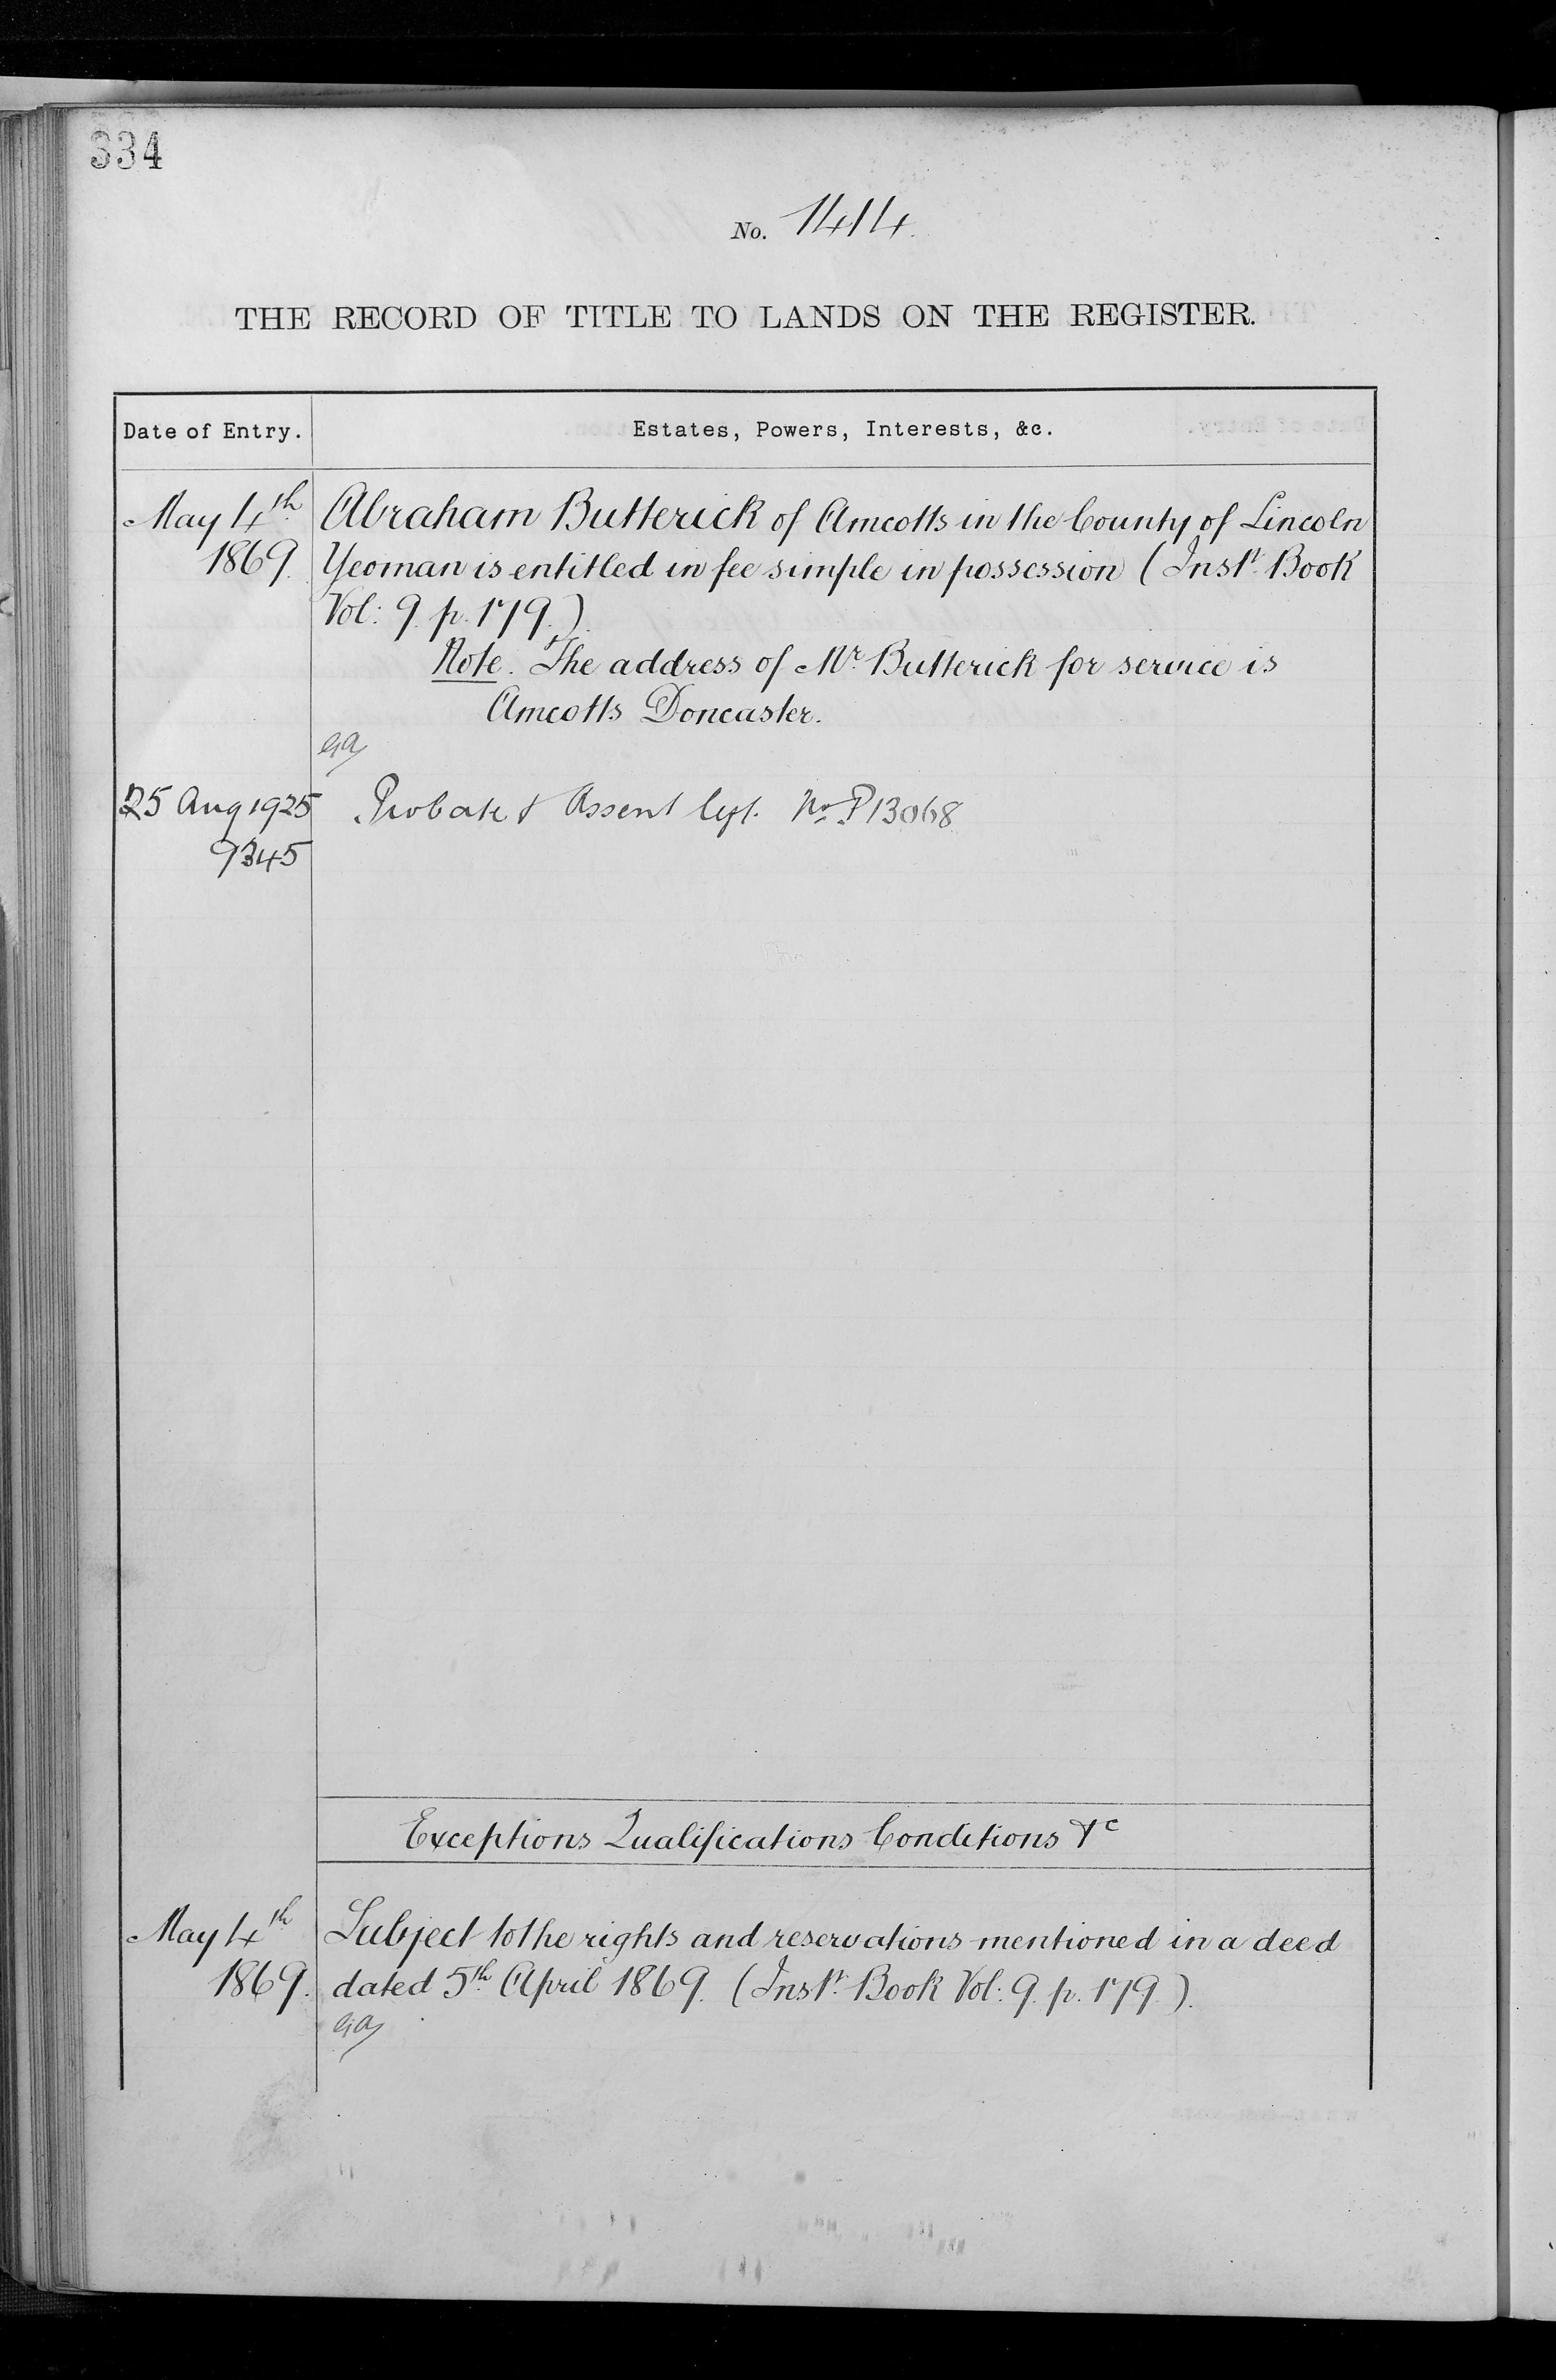 334
No. 1414.
THE RECORD OF TITLE TO LANDS ON THE REGISTER.
Date of Entry. Estates, Powers, Interests, &c.
May 4th Abraham Butterick of Amcotts in the County of Lincoln
1869. Yeoman is entitled in fee simple in possession (Inst. Book
Vol: 9. p. 179.).
Note. The address of Mr. Butterick for service is
Amcotts Doncaster.
25 Aug 1925 Probate & Assent No. P13068
9345
Exceptions Qualifications Conditions &c
May 4th Subject to the rights and reservations mentioned in a deed
1869. dated 5th April 1869. (Inst. Book Vol: 9. p. 179.).